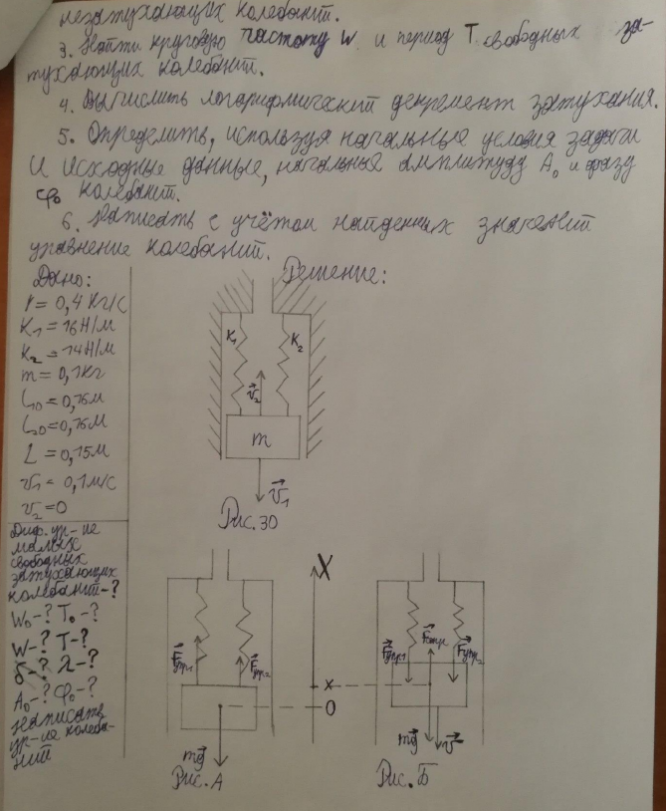 незатухающих колебаний.
3. Найти круговую частоту W и период T свободных за-
тухающих колебаний.
4. Вычислить логарифмический декремент затухания.
5. Определить, используя начальные условия задачи
и исходные данные, начальные амплитуду A₀ и фазу
φ₀ колебаний.
6. Записать с учётом найденных значений
уравнение колебаний.
Дано:
r = 0,4 кг/с
K₁ = 16 Н/м
K₂ = 14 Н/м
m = 0,1 кг
L₁₀ = 0,16 м
L₂₀ = 0,16 м
L = 0,15 м
v₁ = 0,1 м/с
v₂ = 0
Диф. ур-ие
малых
свободных
затухающих
колебаний-?
W₀-? T₀-?
W-? T-?
δ-? λ-?
A₀-? φ₀-?
записать
ур-ие колеба-
ний
Решение:
K₁ K₂
v⃗₂
m
v⃗₁
Рис. 30
F⃗упр₁ F⃗упр₂
mg⃗
Рис. А
X
x
0
F⃗упр₁ F⃗сопр. F⃗упр₂
mg⃗ v⃗
Рис. Б